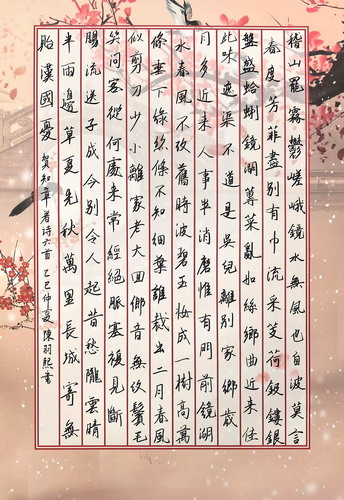 稽山罷霧鬱嵯峨鏡水無風也自波莫言
春度芳菲盡別有中流采芰荷鈒鏤銀
盤盛蛤蜊鏡湖蓴菜亂如絲鄉曲近來佳
此味遮渠不道是吳兒離別家鄉歲
月多近來人事半消磨惟有門前鏡湖
水春風不改舊時波碧玉妝成一樹高萬
條垂下綠絲絛不知細葉誰裁出二月春風
似剪刀少小離家老大回鄉音無改鬢毛
笑問客從何處來常經絕脈塞復見斷
腸流送子成今別令人起昔愁隴雲晴
半雨邊草夏先秋萬里長城寄無
貽漢國憂 賀知章詩六首 乙巳仲夏 陳羽熙書